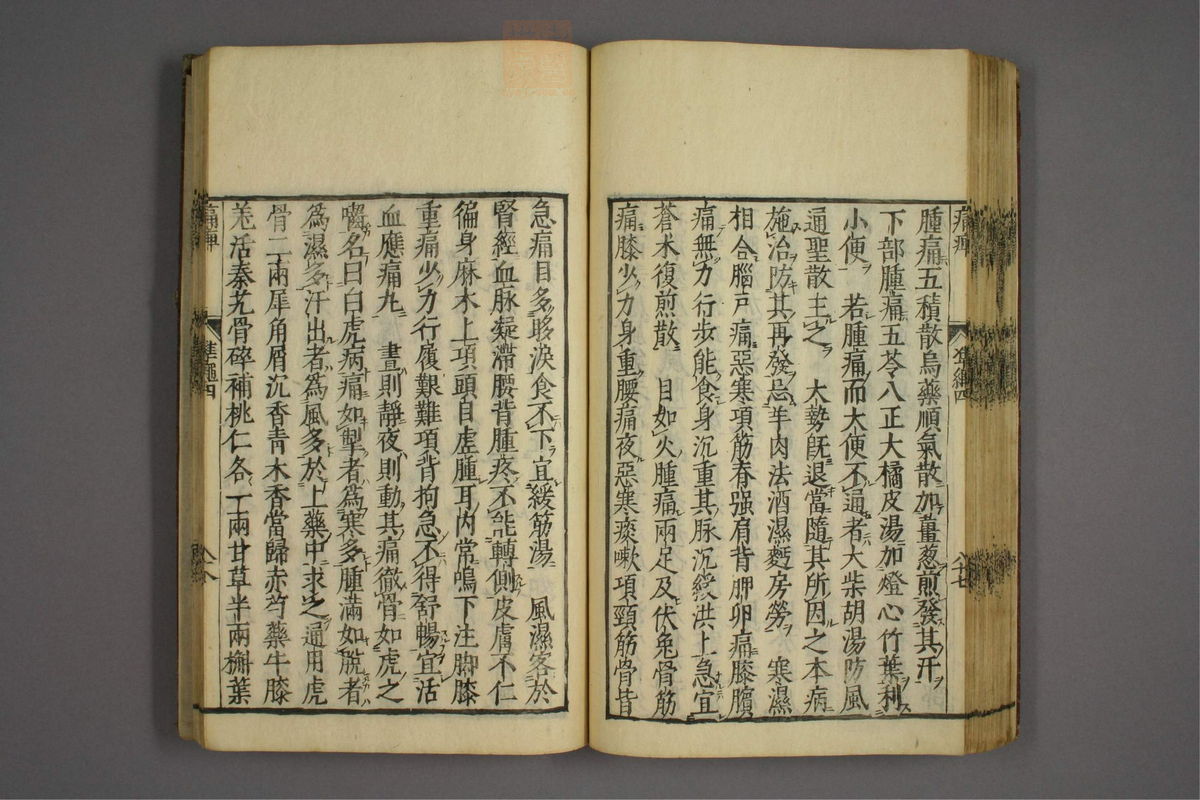 腫痛五積散烏藥順氣散加薑葱煎發其汗
下部腫痛五苓八正大橘皮湯加燈心竹葉利
小便　若腫痛而大便不通者大柴胡湯防風
通聖散主之　大勢既退當隨其所因之本病
施治防其再發忌羊肉法酒濕麪房勞　寒濕
相合腦戸痛惡寒項筋脊强肩背胛卵痛膝臏
痛無力行步能食身沉重其脉沉緩洪上急宜
蒼朮復煎散　目如火腫痛兩足及伏兔骨筋
痛膝少力身重腰痛夜惡寒痰嗽項頸筋骨皆
急痛目多眵淚食不下宜緩筋湯　風濕客於
腎經血脉凝滯腰背腫疼不能轉側皮膚不仁
徧身麻木上項頭目虚腫耳内常鳴下注脚膝
重痛少力行履艱難項背拘急不得舒暢宜活
血應痛丸　晝則靜夜則動其痛徹骨如虎之
嚙名曰白虎病痛如掣者為寒多腫滿如脱者
為濕多汗出者為風多於上藥中求之通用虎
骨二兩犀角屑沉香青木香當歸赤芍藥牛膝
羌活秦艽骨碎補桃仁各一兩甘草半兩槲葉
痛痹